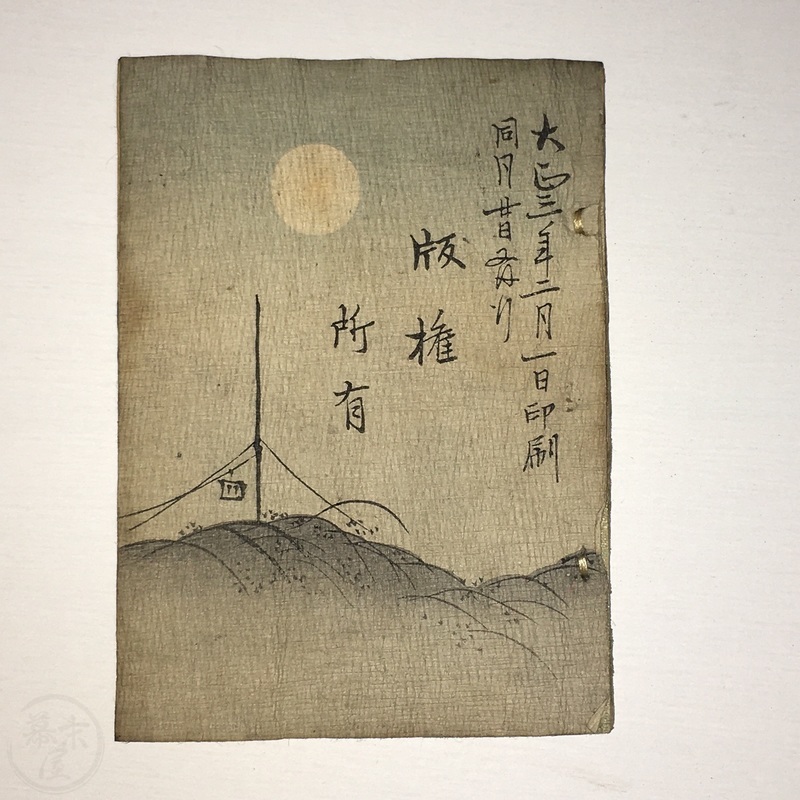 大正三年二月一日印刷
同月廿日発行
版権
所有
幕末屋